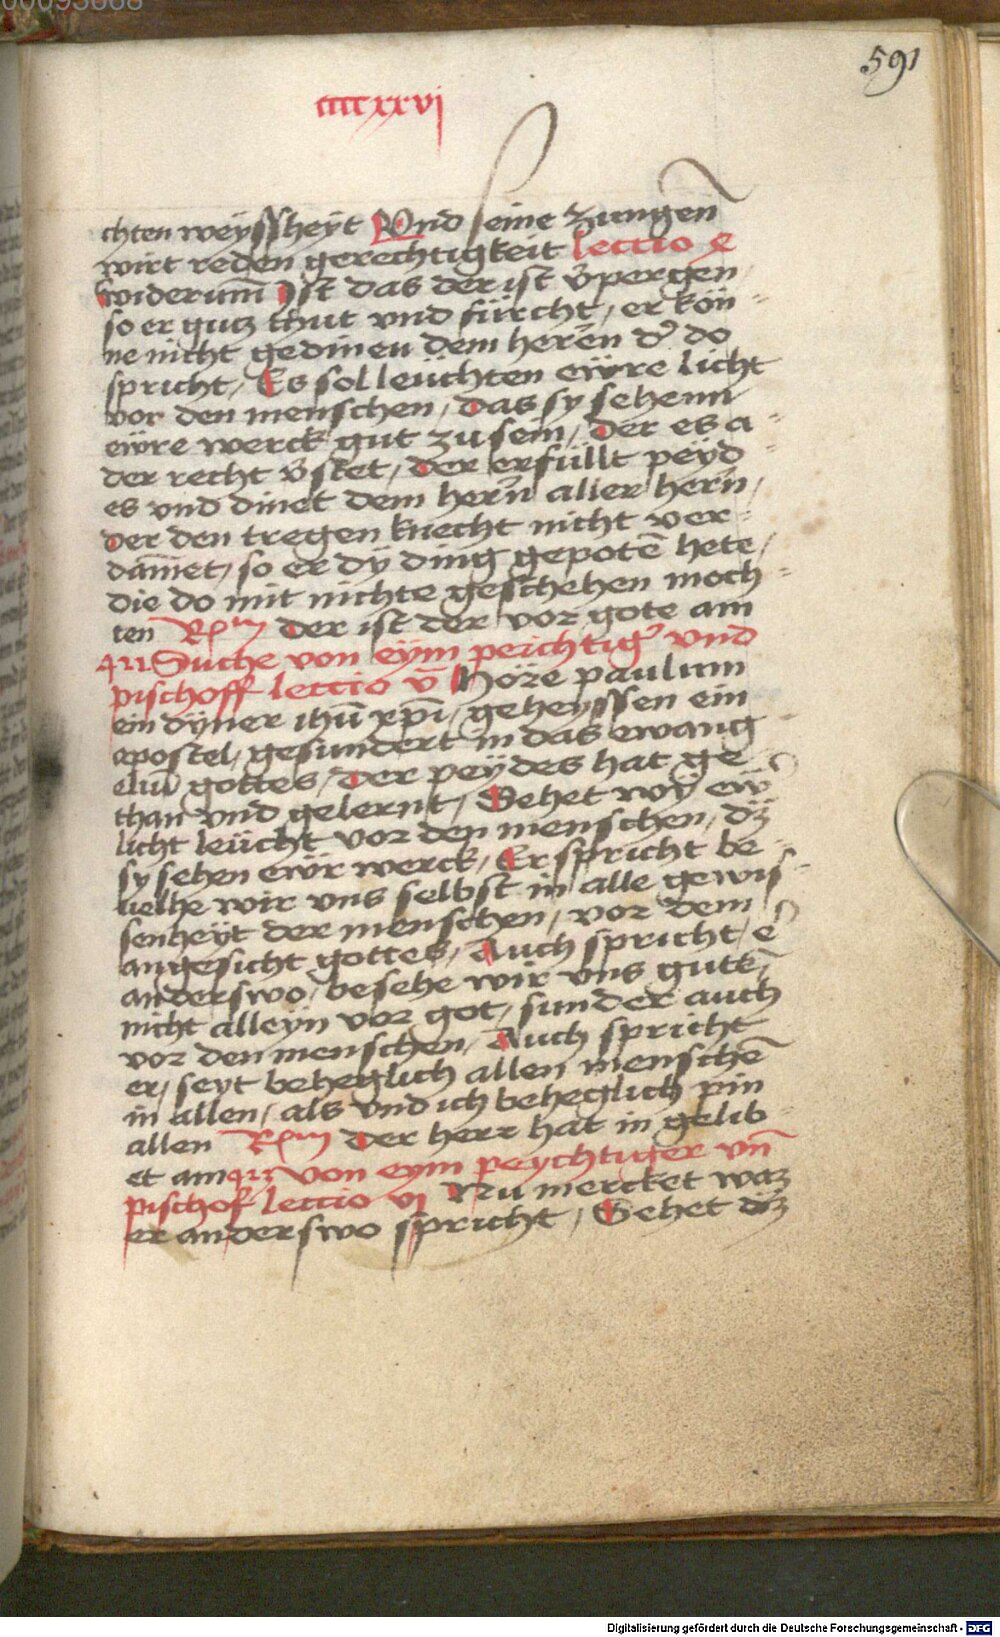 00095668
591
ccccxxvi
chten weysßheyt Und seine zungen̄
wirt reden gerechtigkeit lectio
widerum̄ Ist das der ist v̄pergen
so er gutz thut vnd fürcht / er kön-
ne nicht gedinen dem heren d' do
spricht / Es sol leüchten eẅre licht
vor den menschen / Das sy sehenn
eẅre werck gut zu sein / Der es a-
der recht v̄stet / Der erfüllt peyd-
es vnd dinet dem hern aller hern /
Der den tregen knecht nicht ver-
dam̄et / so er dy ding gepotē hete /
die do mit nichte geschehen moch-
ten Rm Der ist der vor gote am
411 Suche von eym peichtig' vnd
pischoff lectio v̄ Höre paulum
ein dyner ihū xp̄i / geheyssen ein
apostel / gesundert in das ewang-
eliū gottes / Der peydes hat ge-
than vnd gelernt / Sehet wy eẅ
licht leücht vor den menschen / dz
sy sehen eẅr werck / Er spricht be-
uelhe wir vns selbst in alle gewis-
senheyt der menschen / vor dem
angesicht gottes / Auch spricht e'
anderswo / besehe wir vns gutē /
nicht alleyn vor got / sunder auch
vor den menschen / Auch spricht
er / seyt beheglich allen menschē
in allen / als vnd ich beheglich pin
allen Rm Der herr hat in gelib-
et am 423 von eym peychtiger vn̄
pischof lectio vi Nu mercket waz
er anderswo spricht / Sehet dz
Digitalisierung gefördert durch die Deutsche Forschungsgemeinschaft - DFG